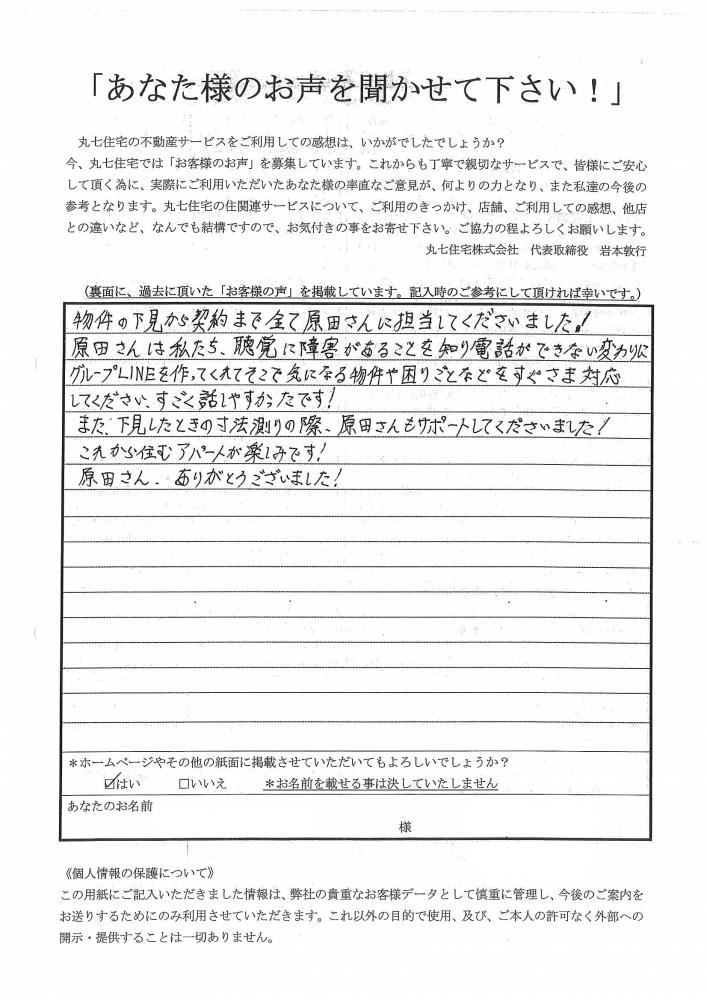 「あなた様のお声を聞かせて下さい！」
丸七住宅の不動産サービスをご利用しての感想は、いかがでしたでしょうか？
今、丸七住宅では「お客様のお声」を募集しています。これからも丁寧で親切なサービスで、皆様にご安心
して頂く為に、実際にご利用いただいたあなた様の率直なご意見が、何よりの力となり、また私達の今後の
参考となります。丸七住宅の住関連サービスについて、ご利用のきっかけ、店舗、ご利用しての感想、他店
との違いなど、なんでも結構ですので、お気付きの事をお寄せ下さい。ご協力の程よろしくお願いします。
丸七住宅株式会社　代表取締役　岩本敦行
（裏面に、過去に頂いた「お客様の声」を掲載しています。記入時のご参考にして頂ければ幸いです。）
物件の下見から契約まで全て原田さんに担当してくださいました！
原田さんは私たち、聴覚に障害があることを知り電話ができない変わりに
グループLINEを作ってくれてそこで気になる物件や困りごとなどをすぐさま対応
してください、すごく話しやすかったです！
また、下見したときの寸法測りの際、原田さんもサポートしてくださいました！
これから住むアパートが楽しみです！
原田さん、ありがとうございました！
＊ホームページやその他の紙面に掲載させていただいてもよろしいでしょうか？
☑はい　□いいえ　＊お名前を載せる事は決していたしません
あなたのお名前
様
《個人情報の保護について》
この用紙にご記入いただきました情報は、弊社の貴重なお客様データとして慎重に管理し、今後のご案内を
お送りするためにのみ利用させていただきます。これ以外の目的で使用、及び、ご本人の許可なく外部への
開示・提供することは一切ありません。